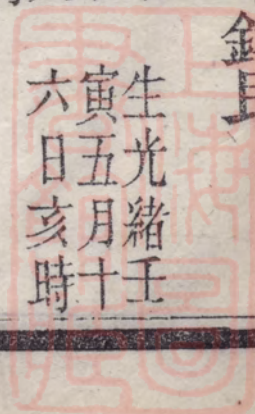 生光緒壬
寅五月十
六日亥時